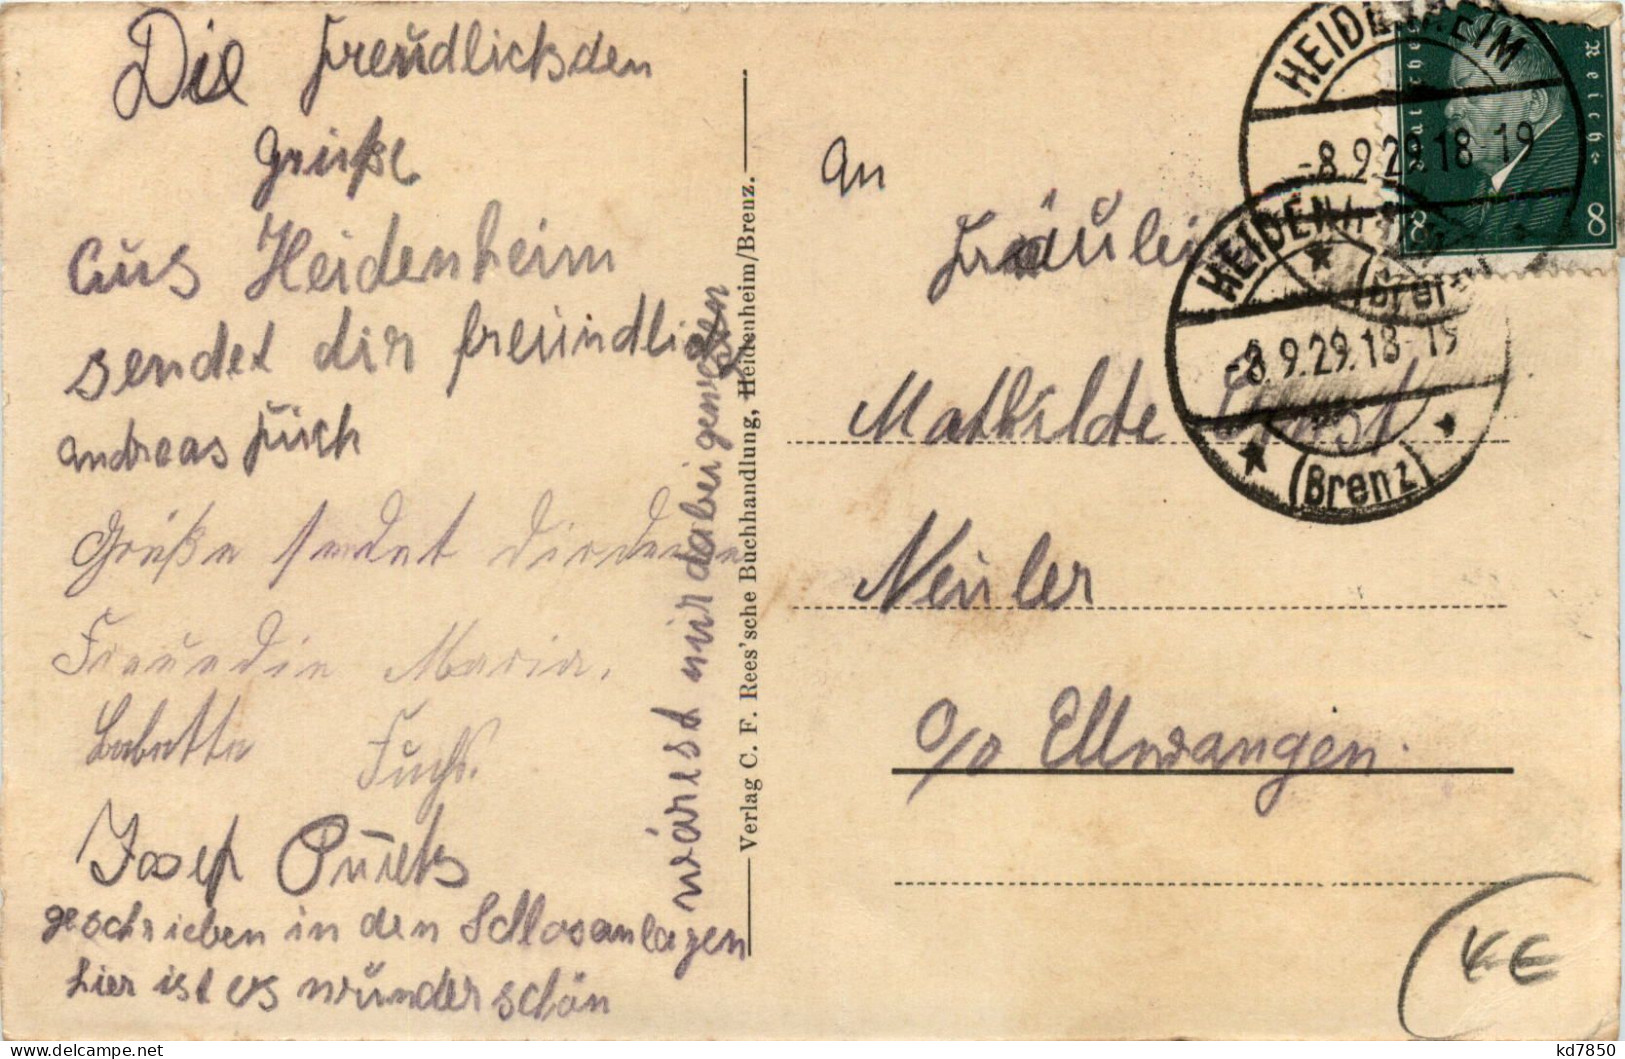 Die freudlichsden
Grüße
aus Heidenheim
sendet dir freundlich
andreas
Grüße sendet dir deine
Freundin Maria.
Babette Fuchs.
Josef
geschrieben in den Schlosanlagen
hier ist es wünderschön
wärest nur dabei gewesen
Verlag C. F. Rees'sche Buchhandlung, Heidenheim/Brenz.
HEIDENHEIM
-8.9.29.18-19
(Brenz)
Reich
8 8
HEIDENHEIM
-8.9.29.18-19
(Brenz)
An
Fräulein
Mathilde
Neuler
o/o Ellwangen.
kd7850